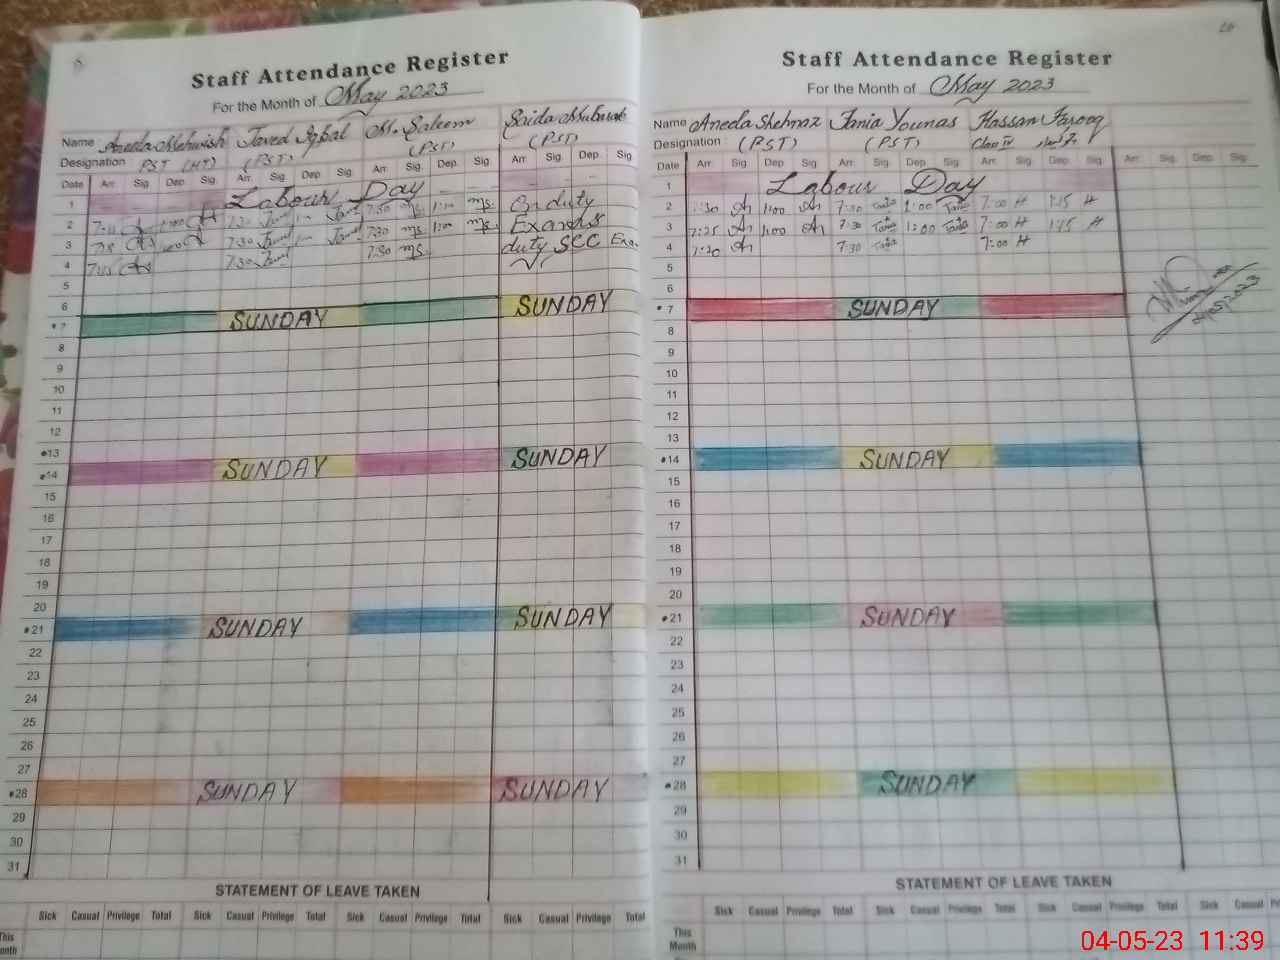 Staff Attendance Register
For the Month of May 2023
Name Aneela Mehwish Javed Iqbal M. Saleem Saida Mubarak
Designation PST (HT) (PST) (PST) (PST)
Date Arr Sig Dep Sig Arr Sig Dep Sig Arr Sig Dep Sig Arr Sig Dep Sig
1 Labour Day
2 7:30 1:00 7:30 m.s. On duty
3 7:30 7:30 m.s. 1:00 m.s. Exams
4 7:45 7:30 7:30 m.s. duty SSC
5
6
7 SUNDAY SUNDAY
8
9
10
11
12
13
14 SUNDAY SUNDAY
15
16
17
18
19
20
21 SUNDAY SUNDAY
22
23
24
25
26
27
28 SUNDAY SUNDAY
29
30
31
STATEMENT OF LEAVE TAKEN
Sick Casual Privilege Total Sick Casual Privilege Total Sick Casual Privilege Total Sick Casual Privilege Total
This Month
Staff Attendance Register
For the Month of May 2023
Name Aneela Shehnaz Tania Younas Hassan Farooq
Designation (PST) (PST) Class IV
Date Arr Sig Dep Sig Arr Sig Dep Sig Arr Sig Dep Sig Arr Sig Dep Sig
1 Labour Day
2 7:30 1:00 7:30 Tania 1:00 Tania 7:00 H 1:15 H
3 7:25 1:00 7:30 Tania 1:00 Tania 7:00 H 1:15 H
4 7:20 7:30 Tania 7:00 H
5
6
7 SUNDAY
8
9
10
11
12
13
14 SUNDAY
15
16
17
18
19
20
21 SUNDAY
22
23
24
25
26
27
28 SUNDAY
29
30
31
STATEMENT OF LEAVE TAKEN
Sick Casual Privilege Total Sick Casual Privilege Total Sick Casual Privilege Total Sick Casual
This Month
04-05-23 11:39